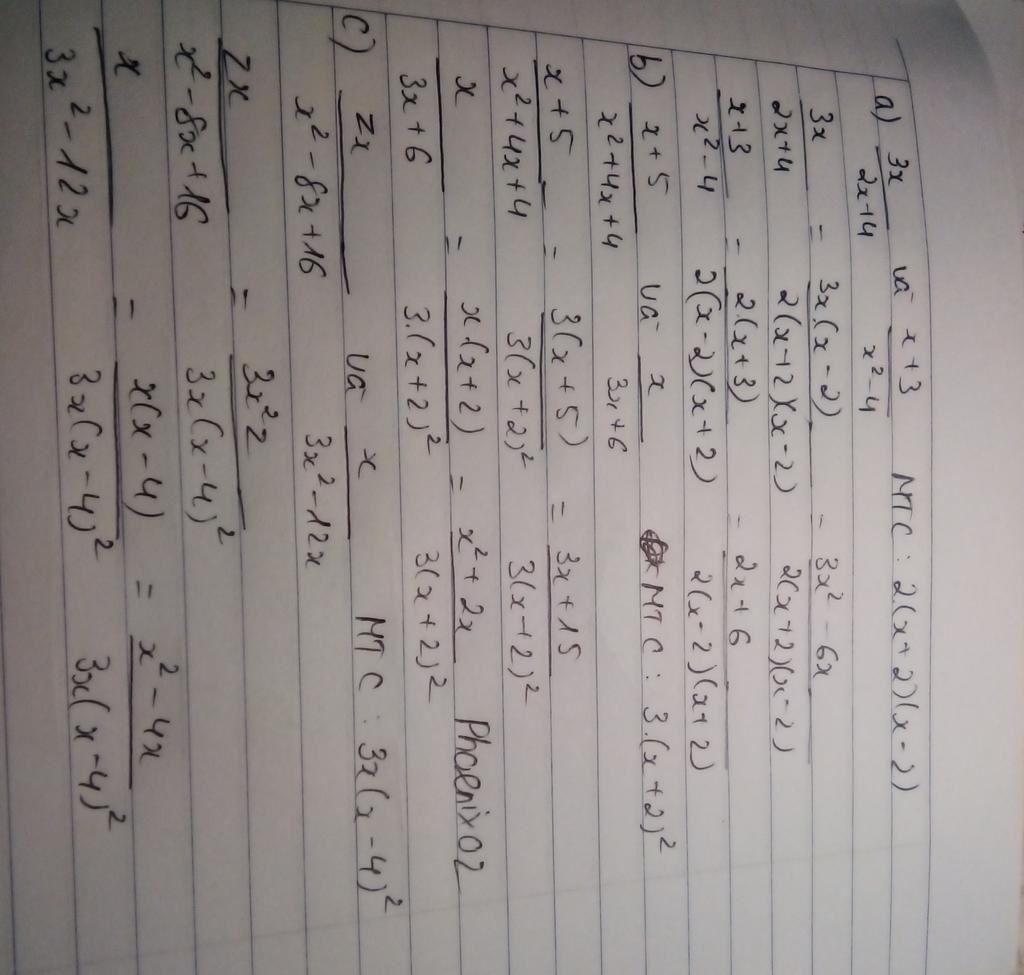 a) 3x/2x+4 và x+3/x²-4 MTC : 2(x+2)(x-2)
3x/2x+4 = 3x.(x-2)/2(x+2)(x-2) = 3x²-6x/2(x+2)(x-2)
x+3/x²-4 = 2.(x+3)/2(x-2)(x+2) = 2x+6/2(x-2)(x+2)
b) x+5/x²+4x+4 và x/3x+6 MTC : 3.(x+2)²
x+5/x²+4x+4 = 3(x+5)/3(x+2)² = 3x+15/3(x+2)²
x/3x+6 = x.(x+2)/3.(x+2)² = x²+2x/3(x+2)² Phoenix02
c) zx/x²-8x+16 và x/3x²-12x MTC : 3x(x-4)²
zx/x²-8x+16 = 3x²z/3x(x-4)²
x/3x²-12x = x(x-4)/3x(x-4)² = x²-4x/3x(x-4)²